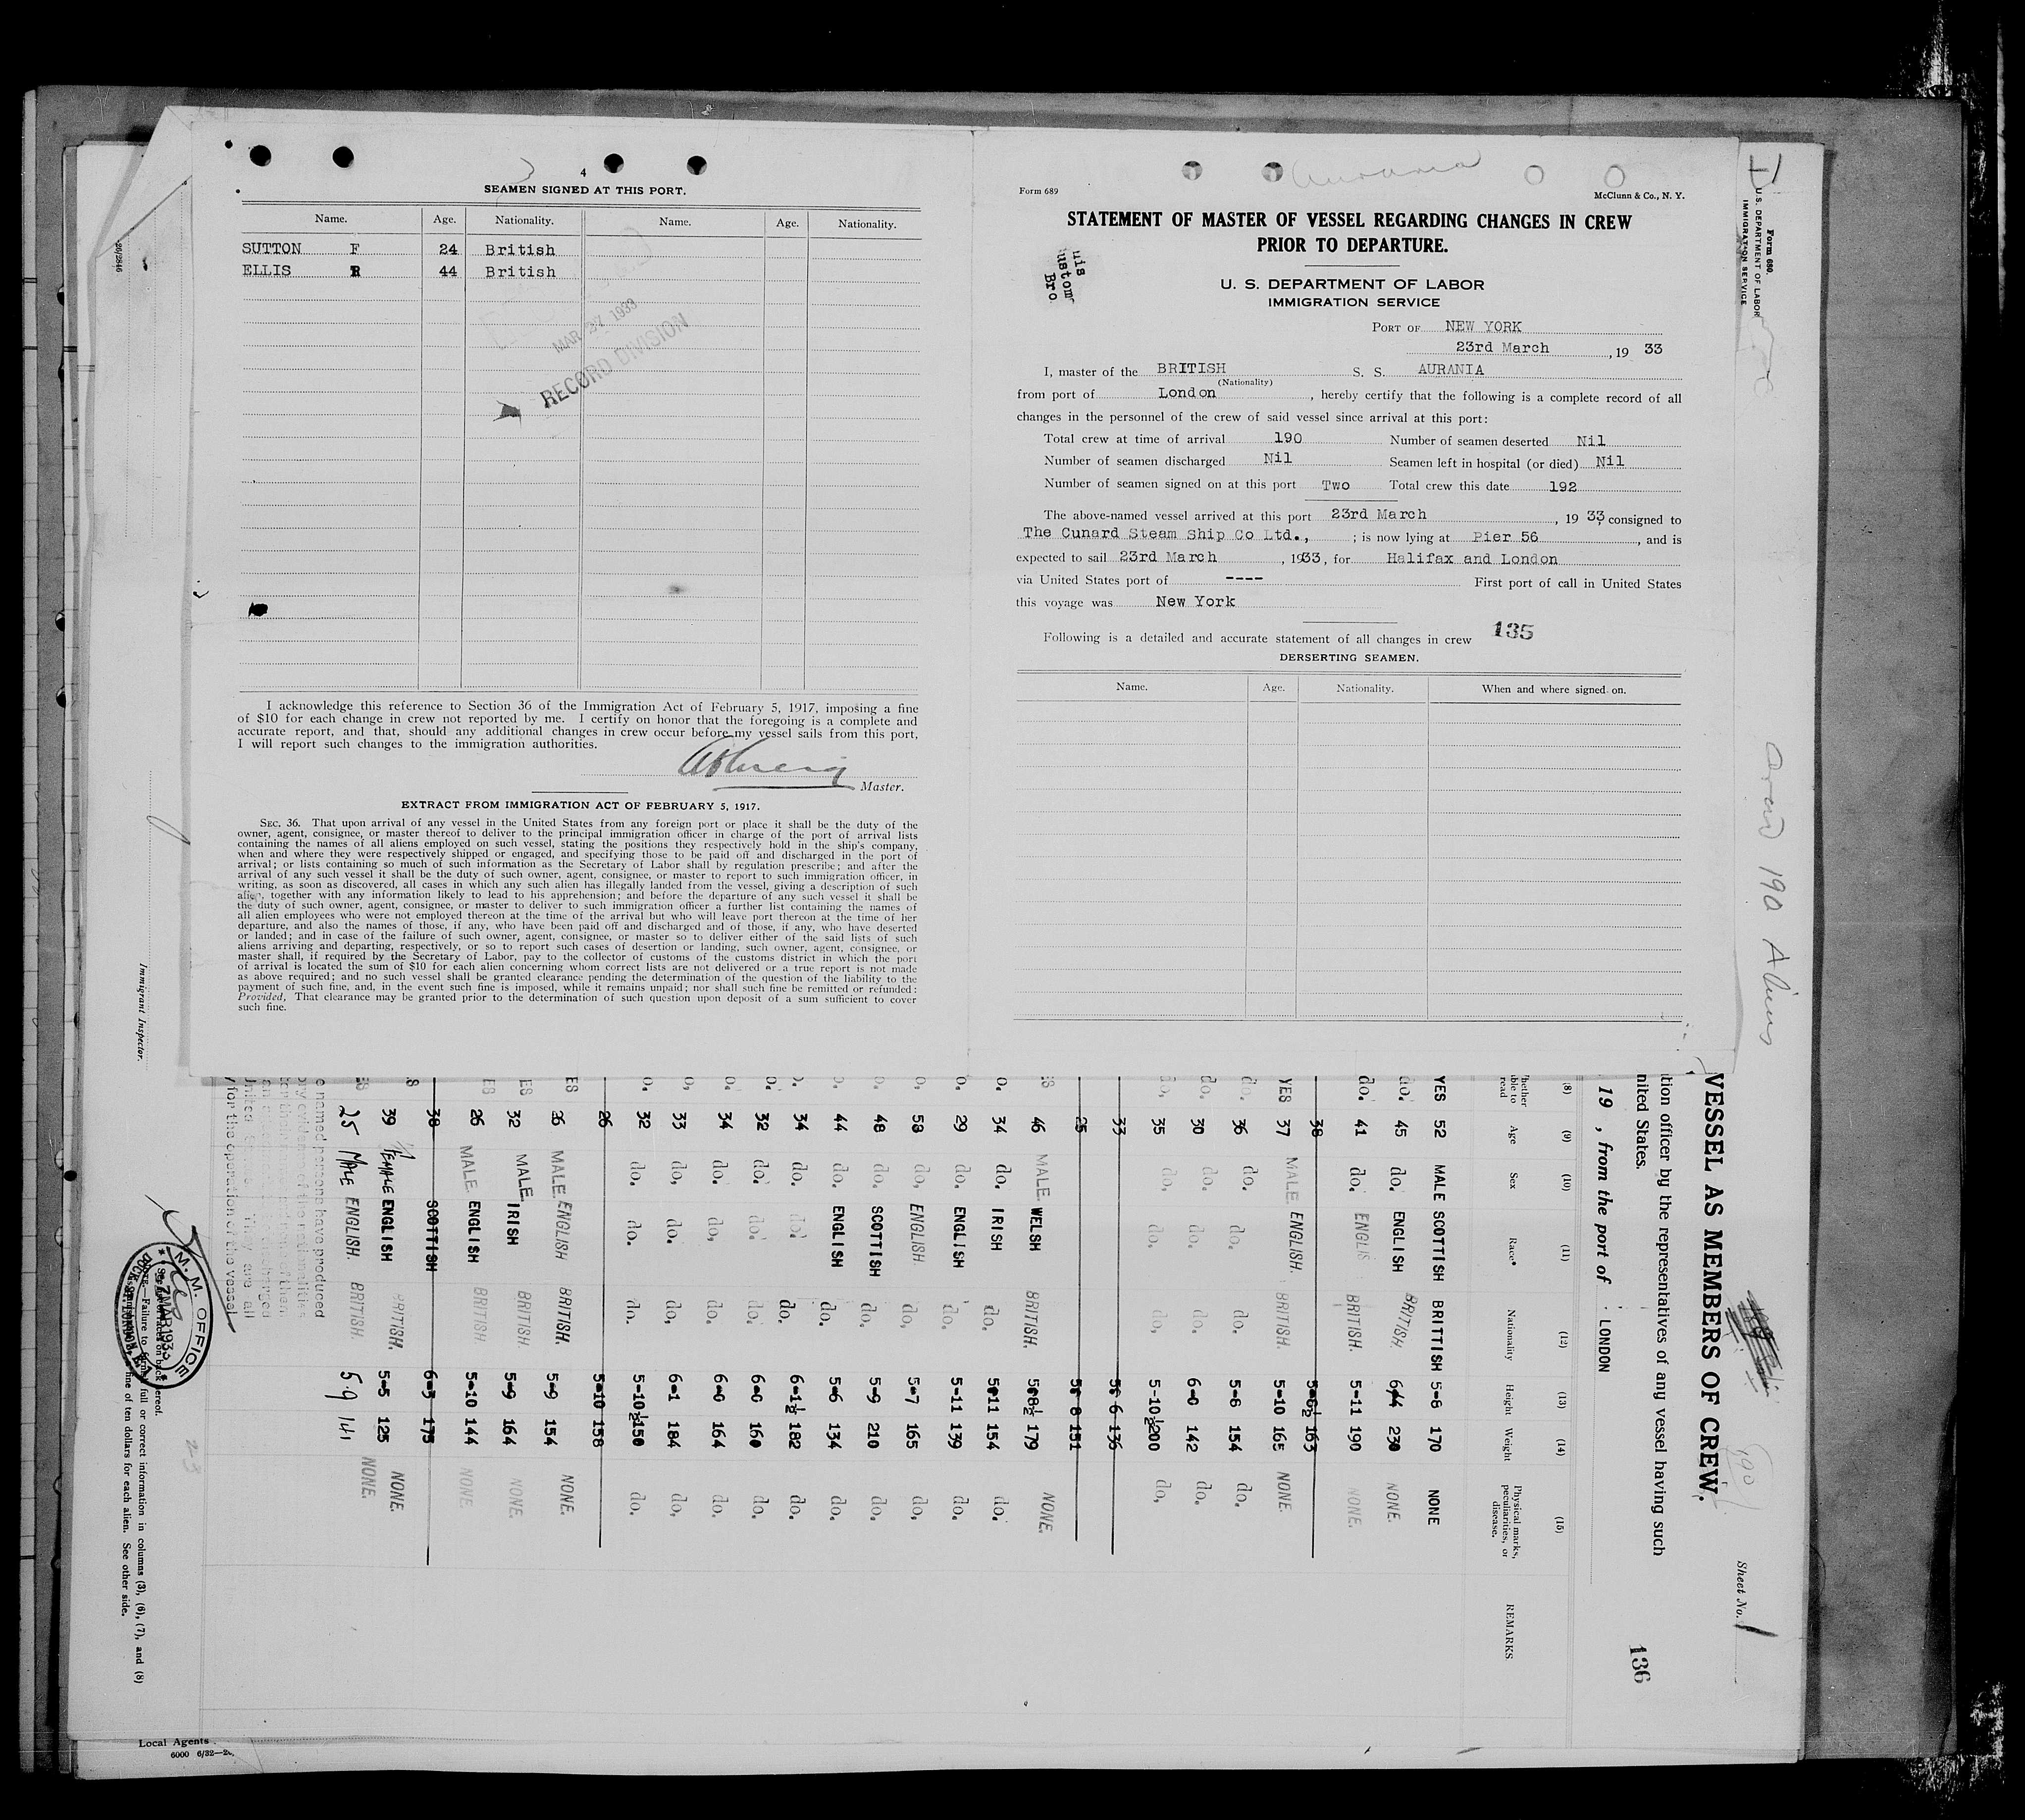 4
SEAMEN SIGNED AT THIS PORT.
Name. Age. Nationality. Name. Age. Nationality.
SUTTON F 24 British
ELLIS R 44 British
MAR 27 1933
RECORD DIVISION
I acknowledge this reference to Section 36 of the Immigration Act of February 5, 1917, imposing a fine
of $10 for each change in crew not reported by me. I certify on honor that the foregoing is a complete and
accurate report, and that, should any additional changes in crew occur before my vessel sails from this port,
I will report such changes to the immigration authorities.
Master.
EXTRACT FROM IMMIGRATION ACT OF FEBRUARY 5, 1917.
SEC. 36. That upon arrival of any vessel in the United States from any foreign port or place it shall be the duty of the
owner, agent, consignee, or master thereof to deliver to the principal immigration officer in charge of the port of arrival lists
containing the names of all aliens employed on such vessel, stating the positions they respectively hold in the ship's company,
when and where they were respectively shipped or engaged, and specifying those to be paid off and discharged in the port of
arrival; or lists containing so much of such information as the Secretary of Labor shall by regulation prescribe; and after the
arrival of any such vessel it shall be the duty of such owner, agent, consignee, or master to report to such immigration officer, in
writing, as soon as discovered, all cases in which any such alien has illegally landed from the vessel, giving a description of such
alien, together with any information likely to lead to his apprehension; and before the departure of any such vessel it shall be
the duty of such owner, agent, consignee, or master to deliver to such immigration officer a further list containing the names of
all alien employees who were not employed thereon at the time of the arrival but who will leave port thereon at the time of her
departure, and also the names of those, if any, who have been paid off and discharged and of those, if any, who have deserted
or landed; and in case of the failure of such owner, agent, consignee, or master so to deliver either of the said lists of such
aliens arriving and departing, respectively, or so to report such cases of desertion or landing, such owner, agent, consignee, or
master shall, if required by the Secretary of Labor, pay to the collector of customs of the customs district in which the port
of arrival is located the sum of $10 for each alien concerning whom correct lists are not delivered or a true report is not made
as above required; and no such vessel shall be granted clearance pending the determination of the question of the liability to the
payment of such fine, and, in the event such fine is imposed, while it remains unpaid; nor shall such fine be remitted or refunded:
Provided, That clearance may be granted prior to the determination of such question upon deposit of a sum sufficient to cover
such fine.
Aurania
Form 689 McClunn & Co., N. Y.
STATEMENT OF MASTER OF VESSEL REGARDING CHANGES IN CREW
PRIOR TO DEPARTURE.
U. S. DEPARTMENT OF LABOR
IMMIGRATION SERVICE
PORT OF NEW YORK
23rd March, 19 33
I, master of the BRITISH S. S. AURANIA
(Nationality)
from port of London, hereby certify that the following is a complete record of all
changes in the personnel of the crew of said vessel since arrival at this port:
Total crew at time of arrival 190 Number of seamen deserted Nil
Number of seamen discharged Nil Seamen left in hospital (or died) Nil
Number of seamen signed on at this port Two Total crew this date 192
The above-named vessel arrived at this port 23rd March, 19 33, consigned to
The Cunard Steam Ship Co Ltd., ; is now lying at Pier 56, and is
expected to sail 23rd March, 1933, for Halifax and London
via United States port of ---- First port of call in United States
this voyage was New York
Following is a detailed and accurate statement of all changes in crew 135
DERSERTING SEAMEN.
Name. Age. Nationality. When and where signed on.
Form 680
U. S. DEPARTMENT OF LABOR
IMMIGRATION SERVICE
190 Aliens
Sheet No. 1
136
VESSEL AS MEMBERS OF CREW.
tion officer by the representatives of any vessel having such
nited States.
19 , from the port of LONDON
(8) (9) (10) (11) (12) (13) (14) (15)
Age Sex Race* Nationality Height Weight Physical marks, peculiarities, or disease. REMARKS
YES 52 MALE SCOTTISH BRITISH 5-6 170 NONE
do. 45 do. ENGLISH BRITISH. 230 NONE.
do. 41 do. ENGLIS BRITISH. 5-11 190 NONE.
38 5-6½ 163
YES 37 MALE ENGLISH. BRITISH. 5-10 165 NONE.
do. 36 do. do. do. 5-6 154 do.
do. 30 do. do. do. 6-0 142 do.
do. 35 do. do. do. 5-10½ 200 do.
33 5 6 136
25 5 8 151
46 MALE. WELSH BRITISH. 5 8½ 179 NONE.
34 do. IRISH do. 5 11 154 do.
29 do. ENGLISH do. 5-11 139 do.
58 do. ENGLISH. do. 5-7 165 do.
48 do. SCOTTISH do. 5-9 210 do.
44 do. ENGLISH do. 5-6 134 do.
34 do. do. do. 6-1½ 182 do.
32 do. do. do. 6-0 160 do.
34 do. do. do. 6-0 164 do.
33 do. do. do. 6-1 184 do.
32 do. do. do. 5-10½ 150 do.
26 5-10 158
ES 26 MALE. ENGLISH BRITISH. 5-9 154 NONE.
ES 32 MALE. IRISH BRITISH. 5-9 164 NONE.
ES 26 MALE ENGLISH BRITISH. 5-10 144 NONE.
38 SCOTTISH 6-3 175
39 FEMALE ENGLISH BRITISH. 5-5 125 NONE.
25 MALE ENGLISH. BRITISH. 5.9 141 NONE.
e named persons have produced
for the operation of the vessel
M. M. OFFICE
MAR 1933
full or correct information in columns (3), (6), (7), and (8)
fine of ten dollars for each alien. See other side.
Immigrant Inspector.
Local Agents
6000 6/32